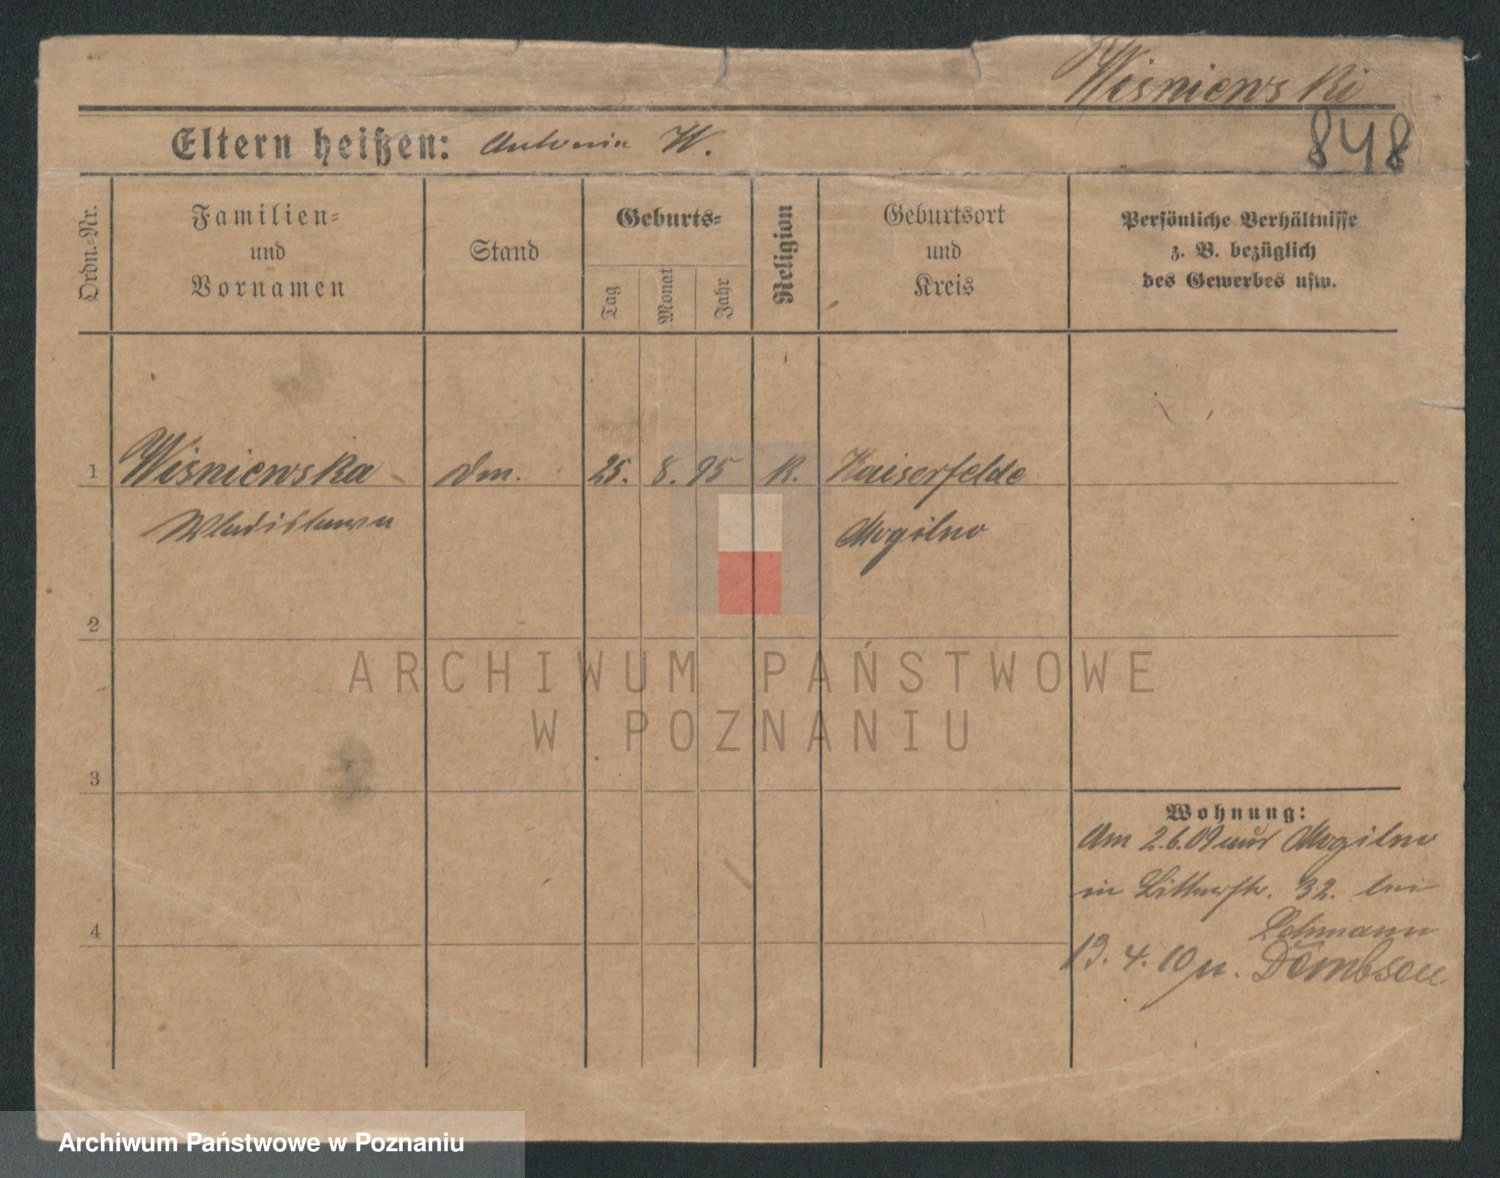 Wisniewski
848
Eltern heißen: Antonie W.
Ordn.-Nr.
Familien-
und
Vornamen
Stand
Geburts-
Tag
Monat
Jahr
Religion
Geburtsort
und
Kreis
Persönliche Verhältnisse
z. B. bezüglich
des Gewerbes usw.
1 Wisniewska dm. 25. 8. 95 K. Kaiserfelde
Wladislawa Mogilno
2
3
4
Wohnung:
Am 2.6.09 aus Mogilno
in 32. bei
Lehmann
13. 4. 10 n. Dembsen
ARCHIWUM PAŃSTWOWE
W POZNANIU
Archiwum Państwowe w Poznaniu